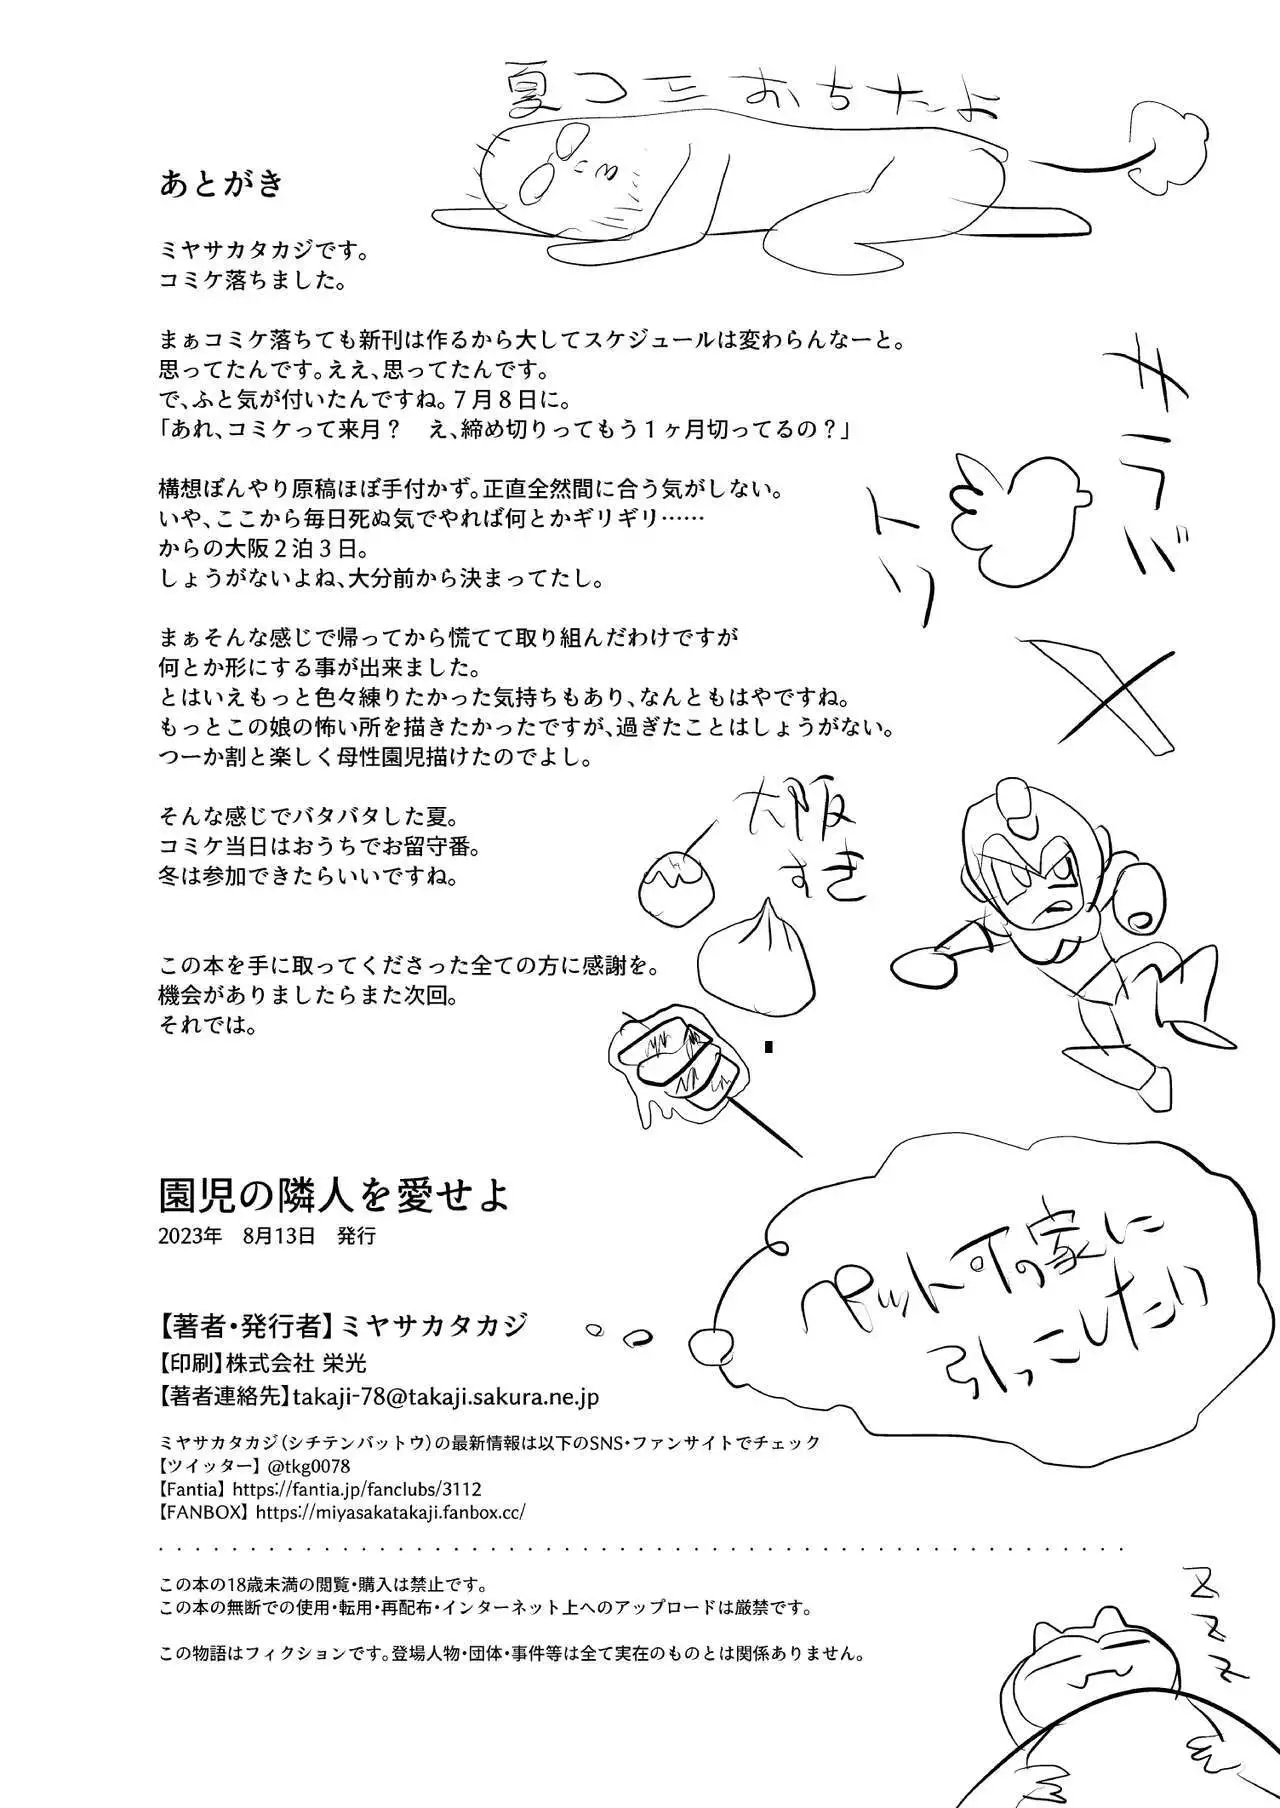 夏コミおちたよ
あとがき
ミヤサカタカジです。
コミケ落ちました。
まぁコミケ落ちても新刊は作るから大してスケジュールは変わらんなーと。
思ってたんです。ええ、思ってたんです。
で、ふと気が付いたんですね。７月８日に。
「あれ、コミケって来月？　え、締め切りってもう１ヶ月切ってるの？」
構想ぼんやり原稿ほぼ手付かず。正直全然間に合う気がしない。
いや、ここから毎日死ぬ気でやれば何とかギリギリ……
からの大阪２泊３日。
しょうがないよね、大分前から決まってたし。
まぁそんな感じで帰ってから慌てて取り組んだわけですが
何とか形にする事が出来ました。
とはいえもっと色々練りたかった気持ちもあり、なんともはやですね。
もっとこの娘の怖い所を描きたかったですが、過ぎたことはしょうがない。
つーか割と楽しく母性園児描けたのでよし。
そんな感じでバタバタした夏。
コミケ当日はおうちでお留守番。
冬は参加できたらいいですね。
この本を手に取ってくださった全ての方に感謝を。
機会がありましたらまた次回。
それでは。
サラバ
トリ
X
大阪
すき
園児の隣人を愛せよ
2023年　8月13日　発行
ペット可の家に
引っこしたい
【著者・発行者】ミヤサカタカジ
【印刷】株式会社 栄光
【著者連絡先】takaji-78@takaji.sakura.ne.jp
ミヤサカタカジ（シチテンバットウ）の最新情報は以下のSNS・ファンサイトでチェック
【ツイッター】@tkg0078
【Fantia】https://fantia.jp/fanclubs/3112
【FANBOX】https://miyasakatakaji.fanbox.cc/
この本の18歳未満の閲覧・購入は禁止です。
この本の無断での使用・転用・再配布・インターネット上へのアップロードは厳禁です。
この物語はフィクションです。登場人物・団体・事件等は全て実在のものとは関係ありません。
ZZZZ